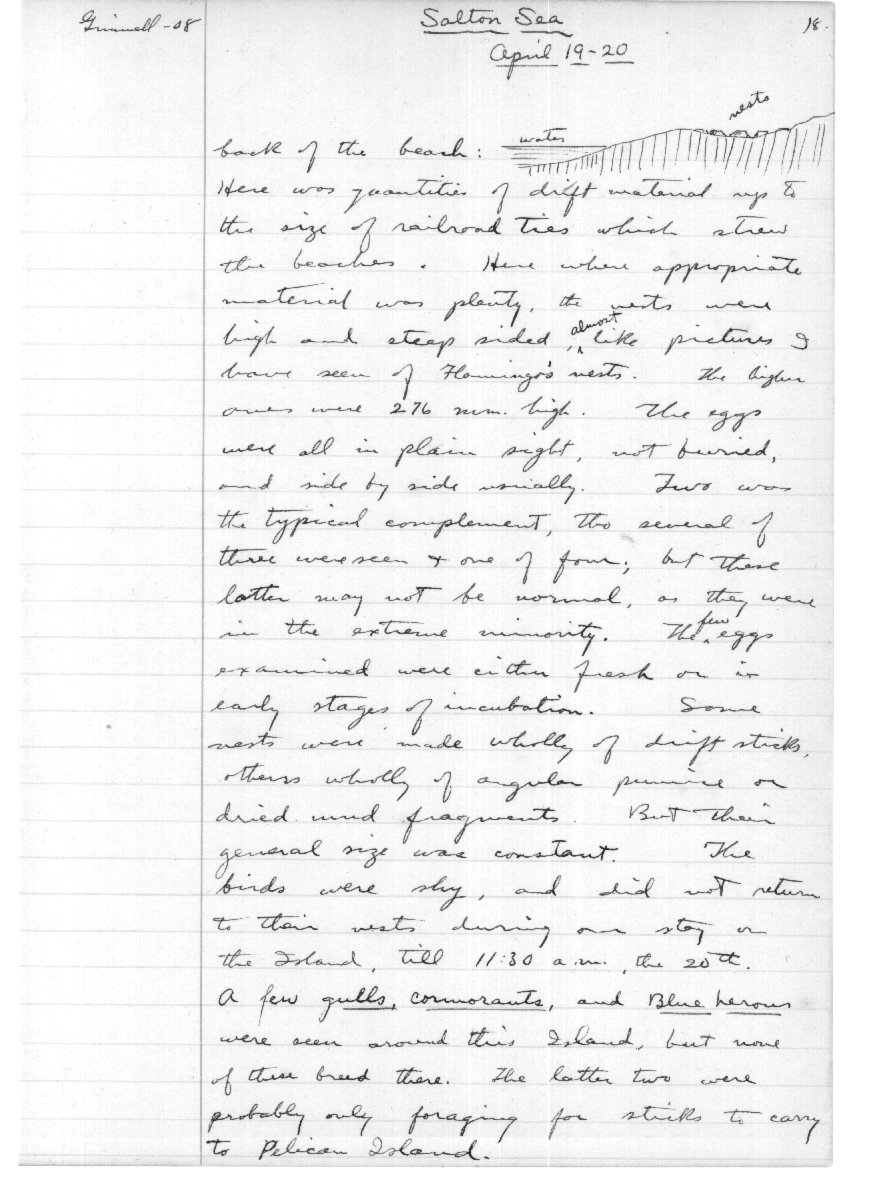 Grinnell-08
Salton Sea
18.
April 19-20
nests
water
back of the beach:
Here was quantities of drift material up to
the size of railroad ties which strew
the beaches. Here where appropriate
material was plenty, the nests were
high and steep sided, almost like pictures I
have seen of Flamingo's nests. The higher
ones were 276 mm. high. The eggs
were all in plain sight, not buried,
and side by side usually. Two was
the typical complement, tho several of
three were seen & one of four; but these
latter may not be normal, as they were
in the extreme minority. The few eggs
examined were either fresh or in
early stages of incubation. Some
nests were made wholly of drift sticks,
others wholly of angular pumice or
dried mud fragments. But their
general size was constant. The
birds were shy, and did not return
to their nests during our stay on
the Island, till 11:30 a.m., the 20th.
A few gulls, cormorants, and Blue herons
were seen around this Island, but none
of these breed there. The latter two were
probably only foraging for sticks to carry
to Pelican Island.